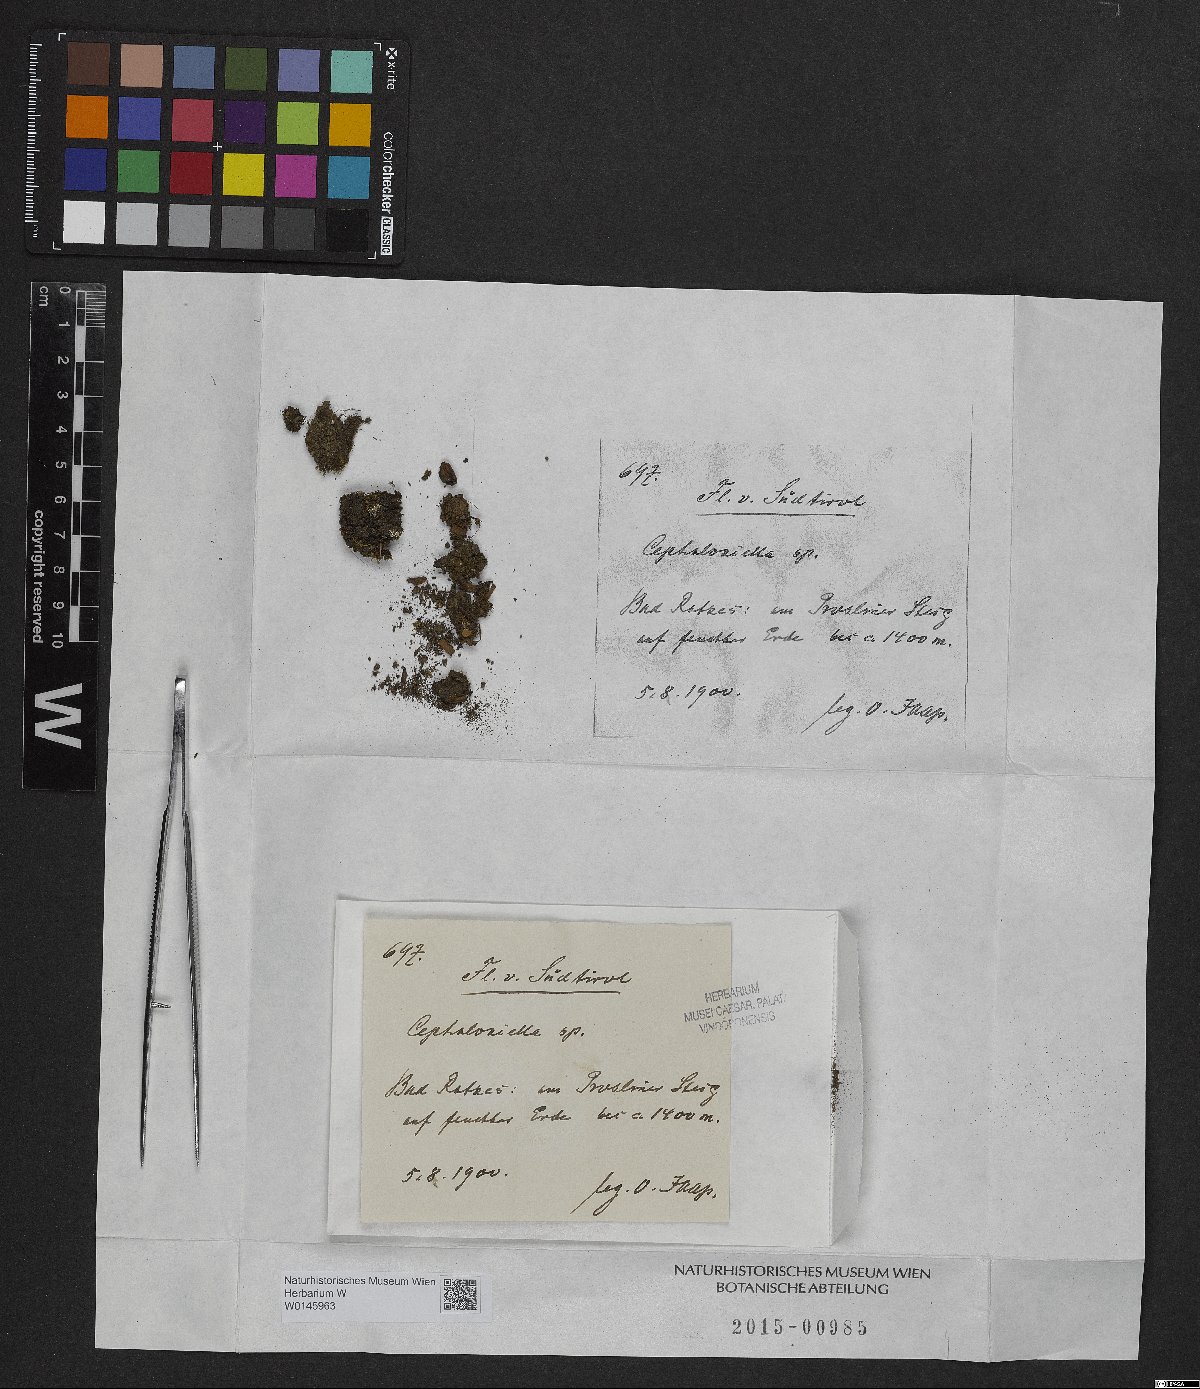 x-rite
colorchecker CLASSIC
cm
0 1 2 3 4 5 6 7 8 9 10
copyright reserved
W
697.
Fl. v. Südtirol
Cephaloziella sp.
Bad Ratzes: am Prosliner Steig
auf feuchter Erde bis c 1400 m.
5.8.1900.
leg. O. Jaap.
697.
Fl. v. Südtirol
Cephaloziella sp.
Bad Ratzes: am Prosliner Steig
auf feuchter Erde bis c 1400 m.
5.8.1900.
leg. O. Jaap.
HERBARIUM
MUSEI CAESAR. PALAT.
VINDOBONENSIS
Naturhistorisches Museum Wien
Herbarium W
W0145963
NATURHISTORISCHES MUSEUM WIEN
BOTANISCHE ABTEILUNG
2015-00985